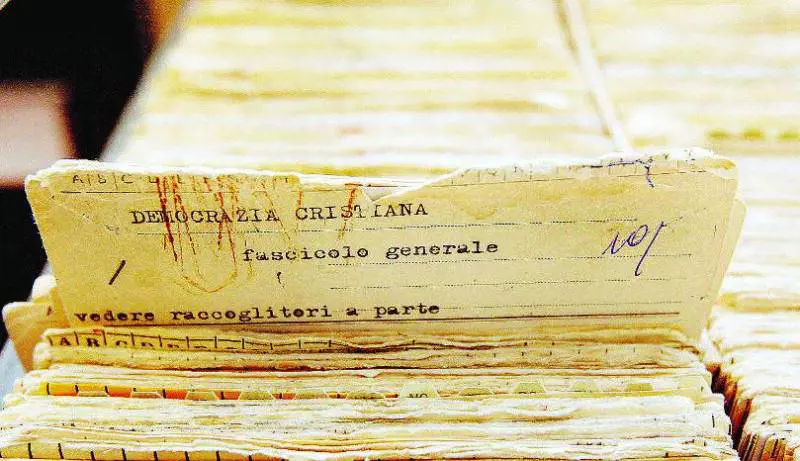 A B C
DEMOCRAZIA CRISTIANA
fascicolo generale
vedere raccoglitori a parte
A B C D